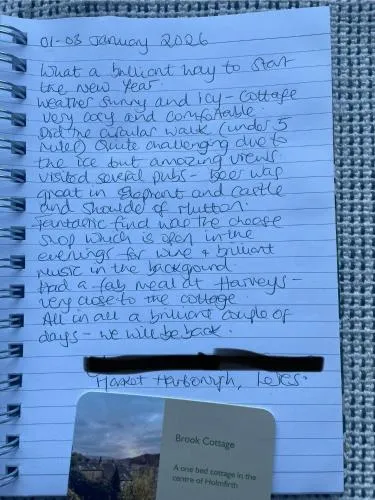 01-03 January 2026
What a brilliant way to start
the new year.
Weather sunny and icy - Cottage
very cosy and comfortable.
Did the circular walk (under 5
miles) Quite challenging due to
the ice but amazing views.
Visited several pubs - beer was
great in Elephant and Castle
and Shoulder of Mutton.
Fantastic find was the cheese
shop which is open in the
evenings for wine + brilliant
music in the background.
Had a fab meal at Harveys -
very close to the cottage.
All in all a brilliant couple of
days - we will be back.
Market Harborough, Leics.
Brook Cottage
A one bed cottage in the
centre of Holmfirth